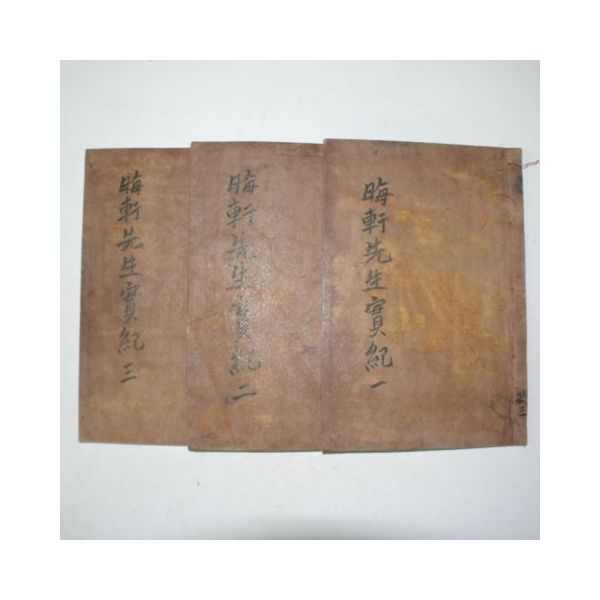 晦軒先生實紀 一
晦軒先生實紀 二
晦軒先生實紀 三
共三